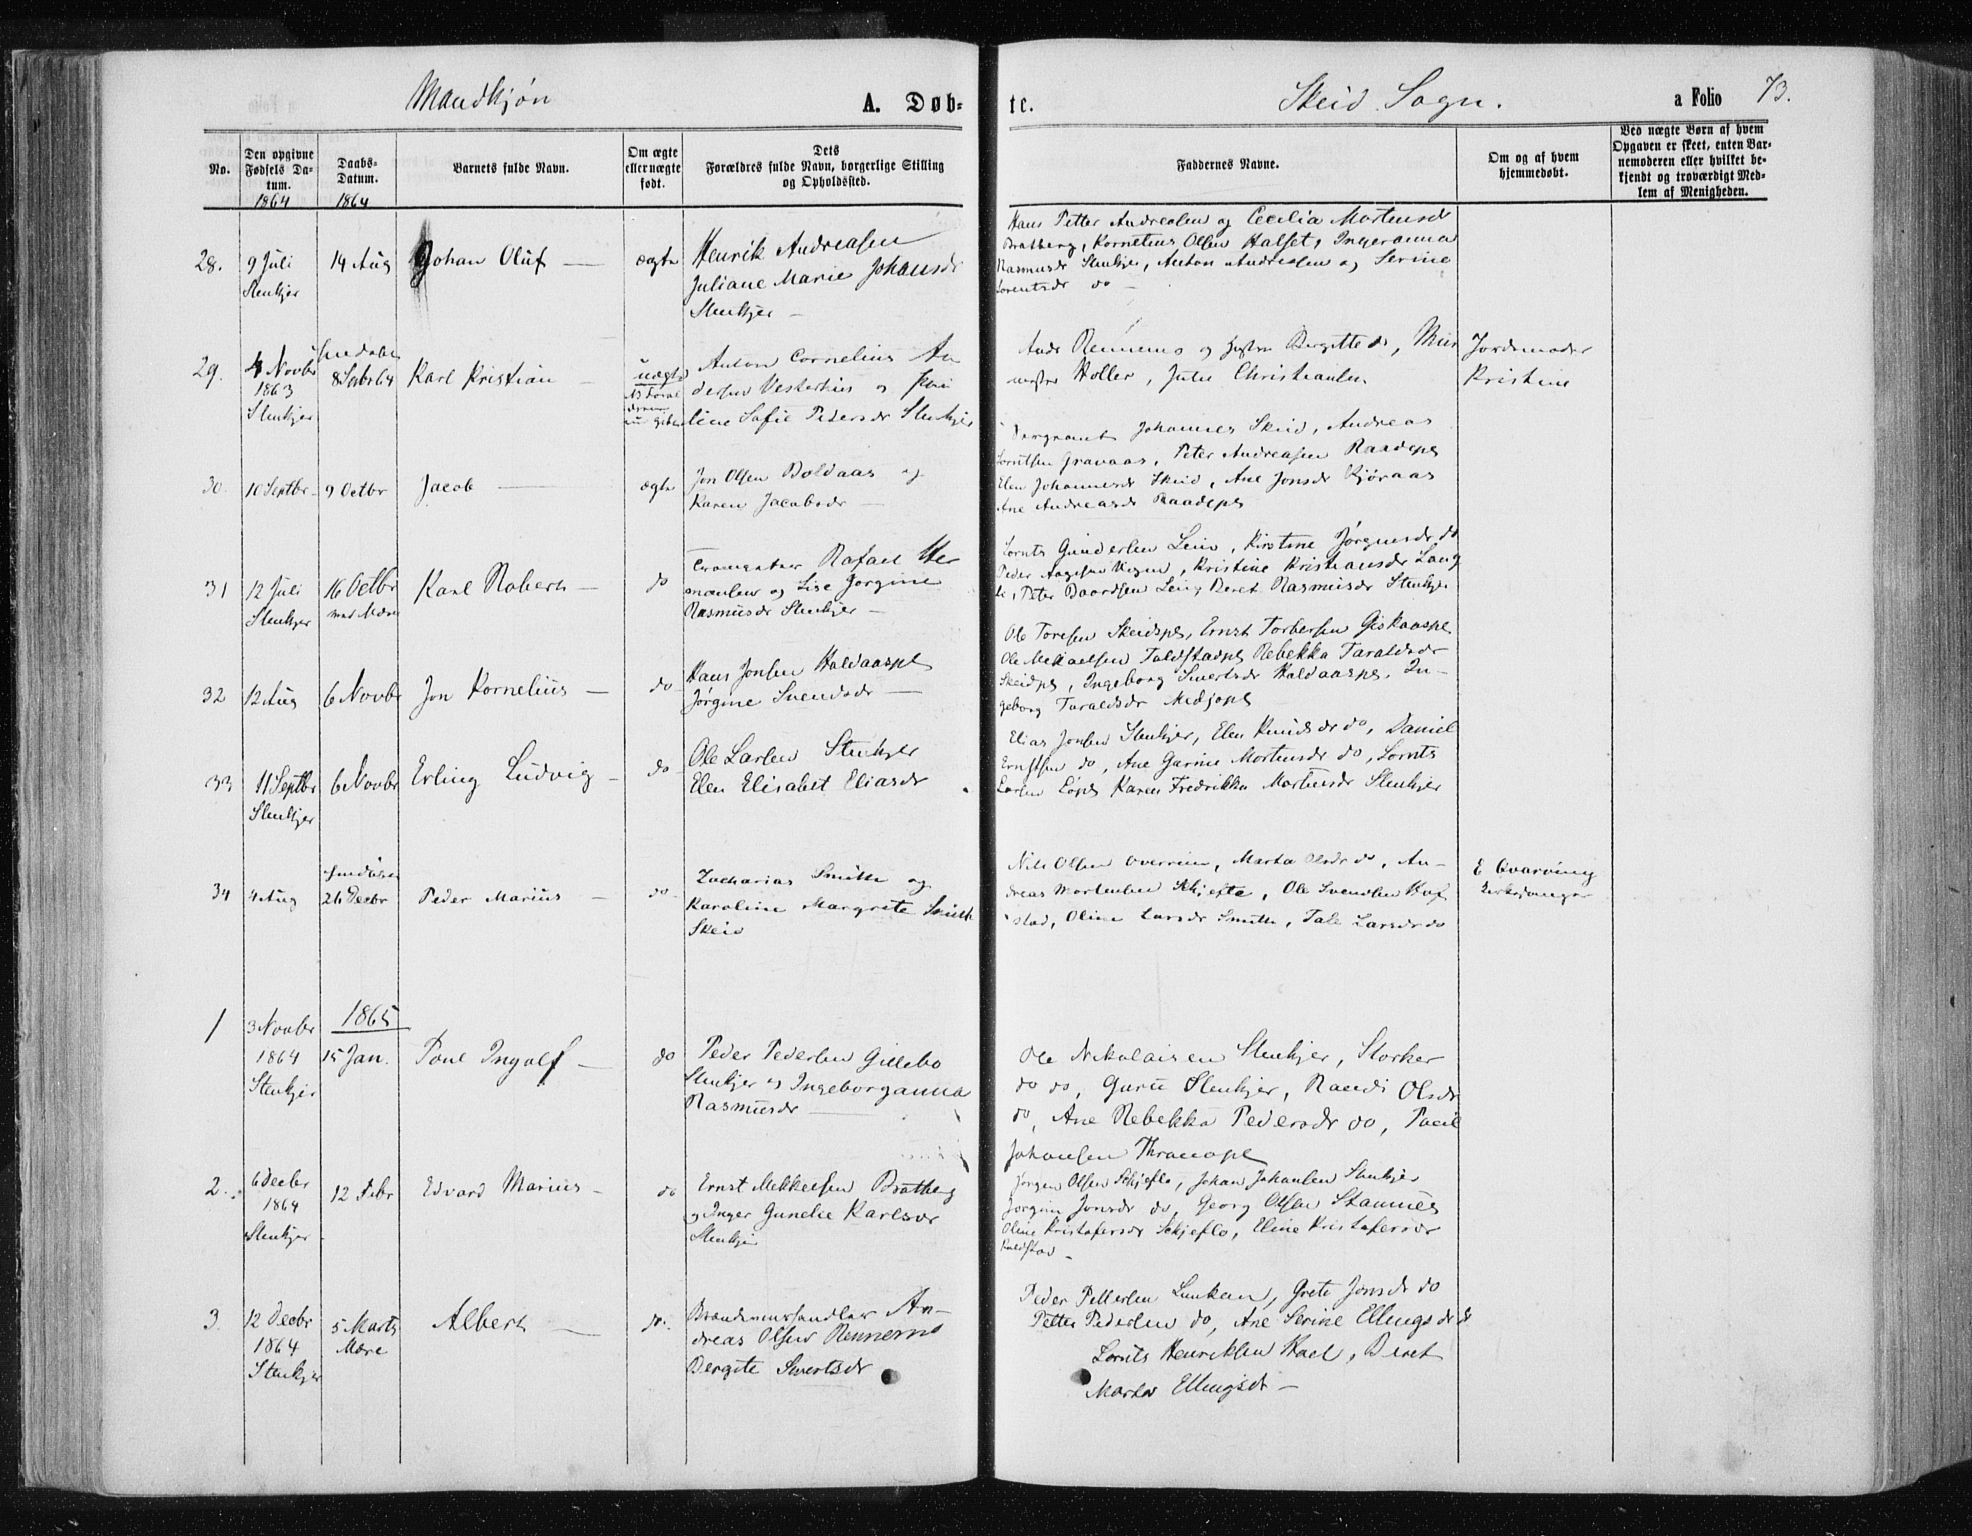 Mandkjøn
A. Døb-
te.
Skeid Sogn.
a Folio 73.
No.
Den opgivne Fødsels Da-tum.
1864
Daabs-Datum.
1864
Barnets fulde Navn.
Om ægte eller uægte født.
Dets Forældres fulde Navn, borgerlige Stilling og Opholdssted.
Faddernes Navne.
Om og af hvem hjemmedøbt.
Ved uægte Børn af hvem Opgaven er skeet, enten Bar-nemoderen eller hvilket be-kjendt og troværdigt Med-lem af Menigheden.
28.
9 Juli
Stenkjer
14 Aug
Johan Oluf
ægte
Henrik Andreasen
Juliane Marie Johansdr
Stenkjer
Hans Petter Andreasen og Cecilia Mortensdr
Bratberg, Kornelius Olsen Halset, Ingeranna
Rasmusdr Stenkjer, Anton Andreasen og Serine
Lorentsdr do
29.
4 Novbr
1863
Stenkjer
8
Karl Kristian
uægte
Anton Cornelius An
dersen og
line Sofie Pedersdr Stenkjer
Rennemo og Bergitte do,
Holler, Christiansen
Jordemoder
Kristine
30.
10 Septbr
9 Octbr
Jacob
ægte
Jon Olsen Boldaas og
Karen Jacobsdr
Johannes Skeid, Andreas
Gravaas, Peter Andreasen
Elen Johannesdr Skeid, Ane Jonsdr Kjøraas
Ane Andreasdr
31
12 Juli
Stenkjer
16 Octbr
Karl Robert
do
Rafael Her
mansen og Lise Jorgine
Rasmusdr Stenkjer
Lornts Gundersen Lein, Kirstine Jørgensdr do
Peder, Kristine Kristiansdr
Peter Baardsen Lein, Beret Rasmusdr Stenkjer
32
12 Aug
6 Novbr
Jon Kornelius
do
Hans Jonsen Haldaaspl
Jørgine Svendsdr
Ole Toresen Skeidspl, Ernst Torbersen Giskaaspl
Ole Mekaelsen Rebekka Taraldsdr
Skeidpl, Ingeborg Sivertsdr Haldaaspl. In-
geborg Taraldsdr
33
11 Septbr
Stenkjer
6 Novbr
Erling Ludvig
do
Ole Larsen Stenkjer
Elen Elisabet Eliasdr
Elias Jonsen Stenkjer, Elen Knudsdr do, Daniel
Ernstsen do, Ane Gurine Mortensdr do, Lornts
Larsen Karen Fredrikka Mortensdr Stenkjer
34
4 Aug
26 Decbr
Peder Marius
do
Zacharias Smith og
Karoline Margrete Smith
Skeid
Nils Olsen, Marta Olsdr do, An-
dreas Mortensen Skjefte, Ole Svendsen
stad, Oline Larsdr Smith, Larsdr do
E Qvarving
1865
1
3 Novbr
1864
Stenkjer
15 Jan.
Poul Ingolf
do
Peder Pedersen Gillebo
Stenkjer og Ingeborganna
Rasmusdr
Ole Nikolaisen Stenkjer, Storker
do do, Guru Stenkjer, Randi Olsdr
do, Ane Rebekka Pedersdr do, Paul
Johansen
2.
6 Decbr
1864
Stenkjer
12 Febr
Edvard Marius
do
Ernst Mekkelsen Bratberg
og Inger Gunelie Karlsdr
Stenkjer
Jørgen Olsen Skjeflo, Johan Johansen Stenkjer
Jørgine Jonsdr do, Georg Olsen Stamnes
Oline Kristofersdr Skjeflo, Eline Kristofersdr
3.
12 Decbr
1864
Stenkjer
5 Marts
Mære
Albert
do
Brændevinshandler An-
dreas Olsen Rennemo
Bergite Sivertsdr
Peder Pettersen, Grete Jonsdr do
Petter Pedersen do, Ane Serine Ellingsdr do
Lornts Henriksen, Beret
Marta Ellingsdr